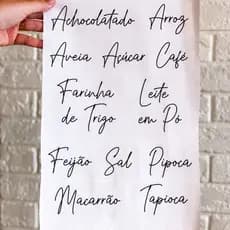 Achocolatado Arroz
Aveia Açúcar Café
Farinha Leite
de Trigo em Pó
Feijão Sal Pipoca
Macarrão Tapioca